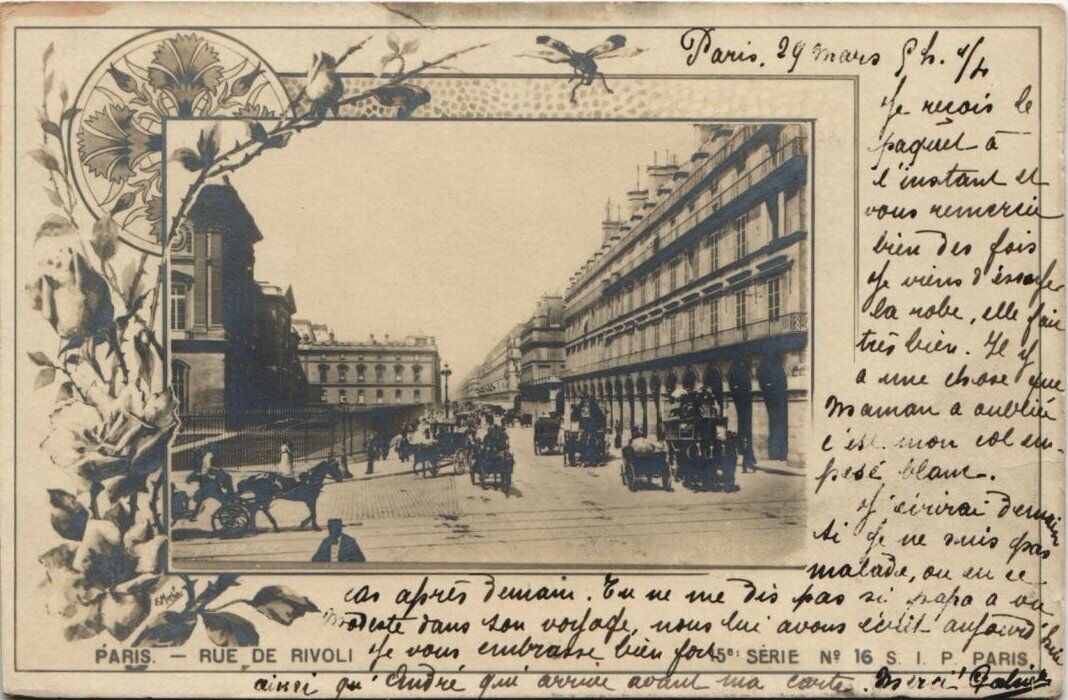 Paris, 29 mars 5 h. 1/2
Je reçois le
paquet à
l'instant et
vous remercie
bien des fois
Je viens d'éssayer
la robe, elle fait
très bien. Il y
a une chose que
Maman a oubliée
c'est mon col em-
pesé blanc.
J'écrirai demain
si je ne suis pas
malade, ou en ce
cas après demain. Tu ne me dis pas si papa a vu
dans son voyage, nous lui avons écrit aujourd'hui
PARIS. — RUE DE RIVOLI
Je vous embrasse bien fort
5e SÉRIE No 16 S. I. P. PARIS.
ainsi qu'André qui arrive avant ma carte. Merci!